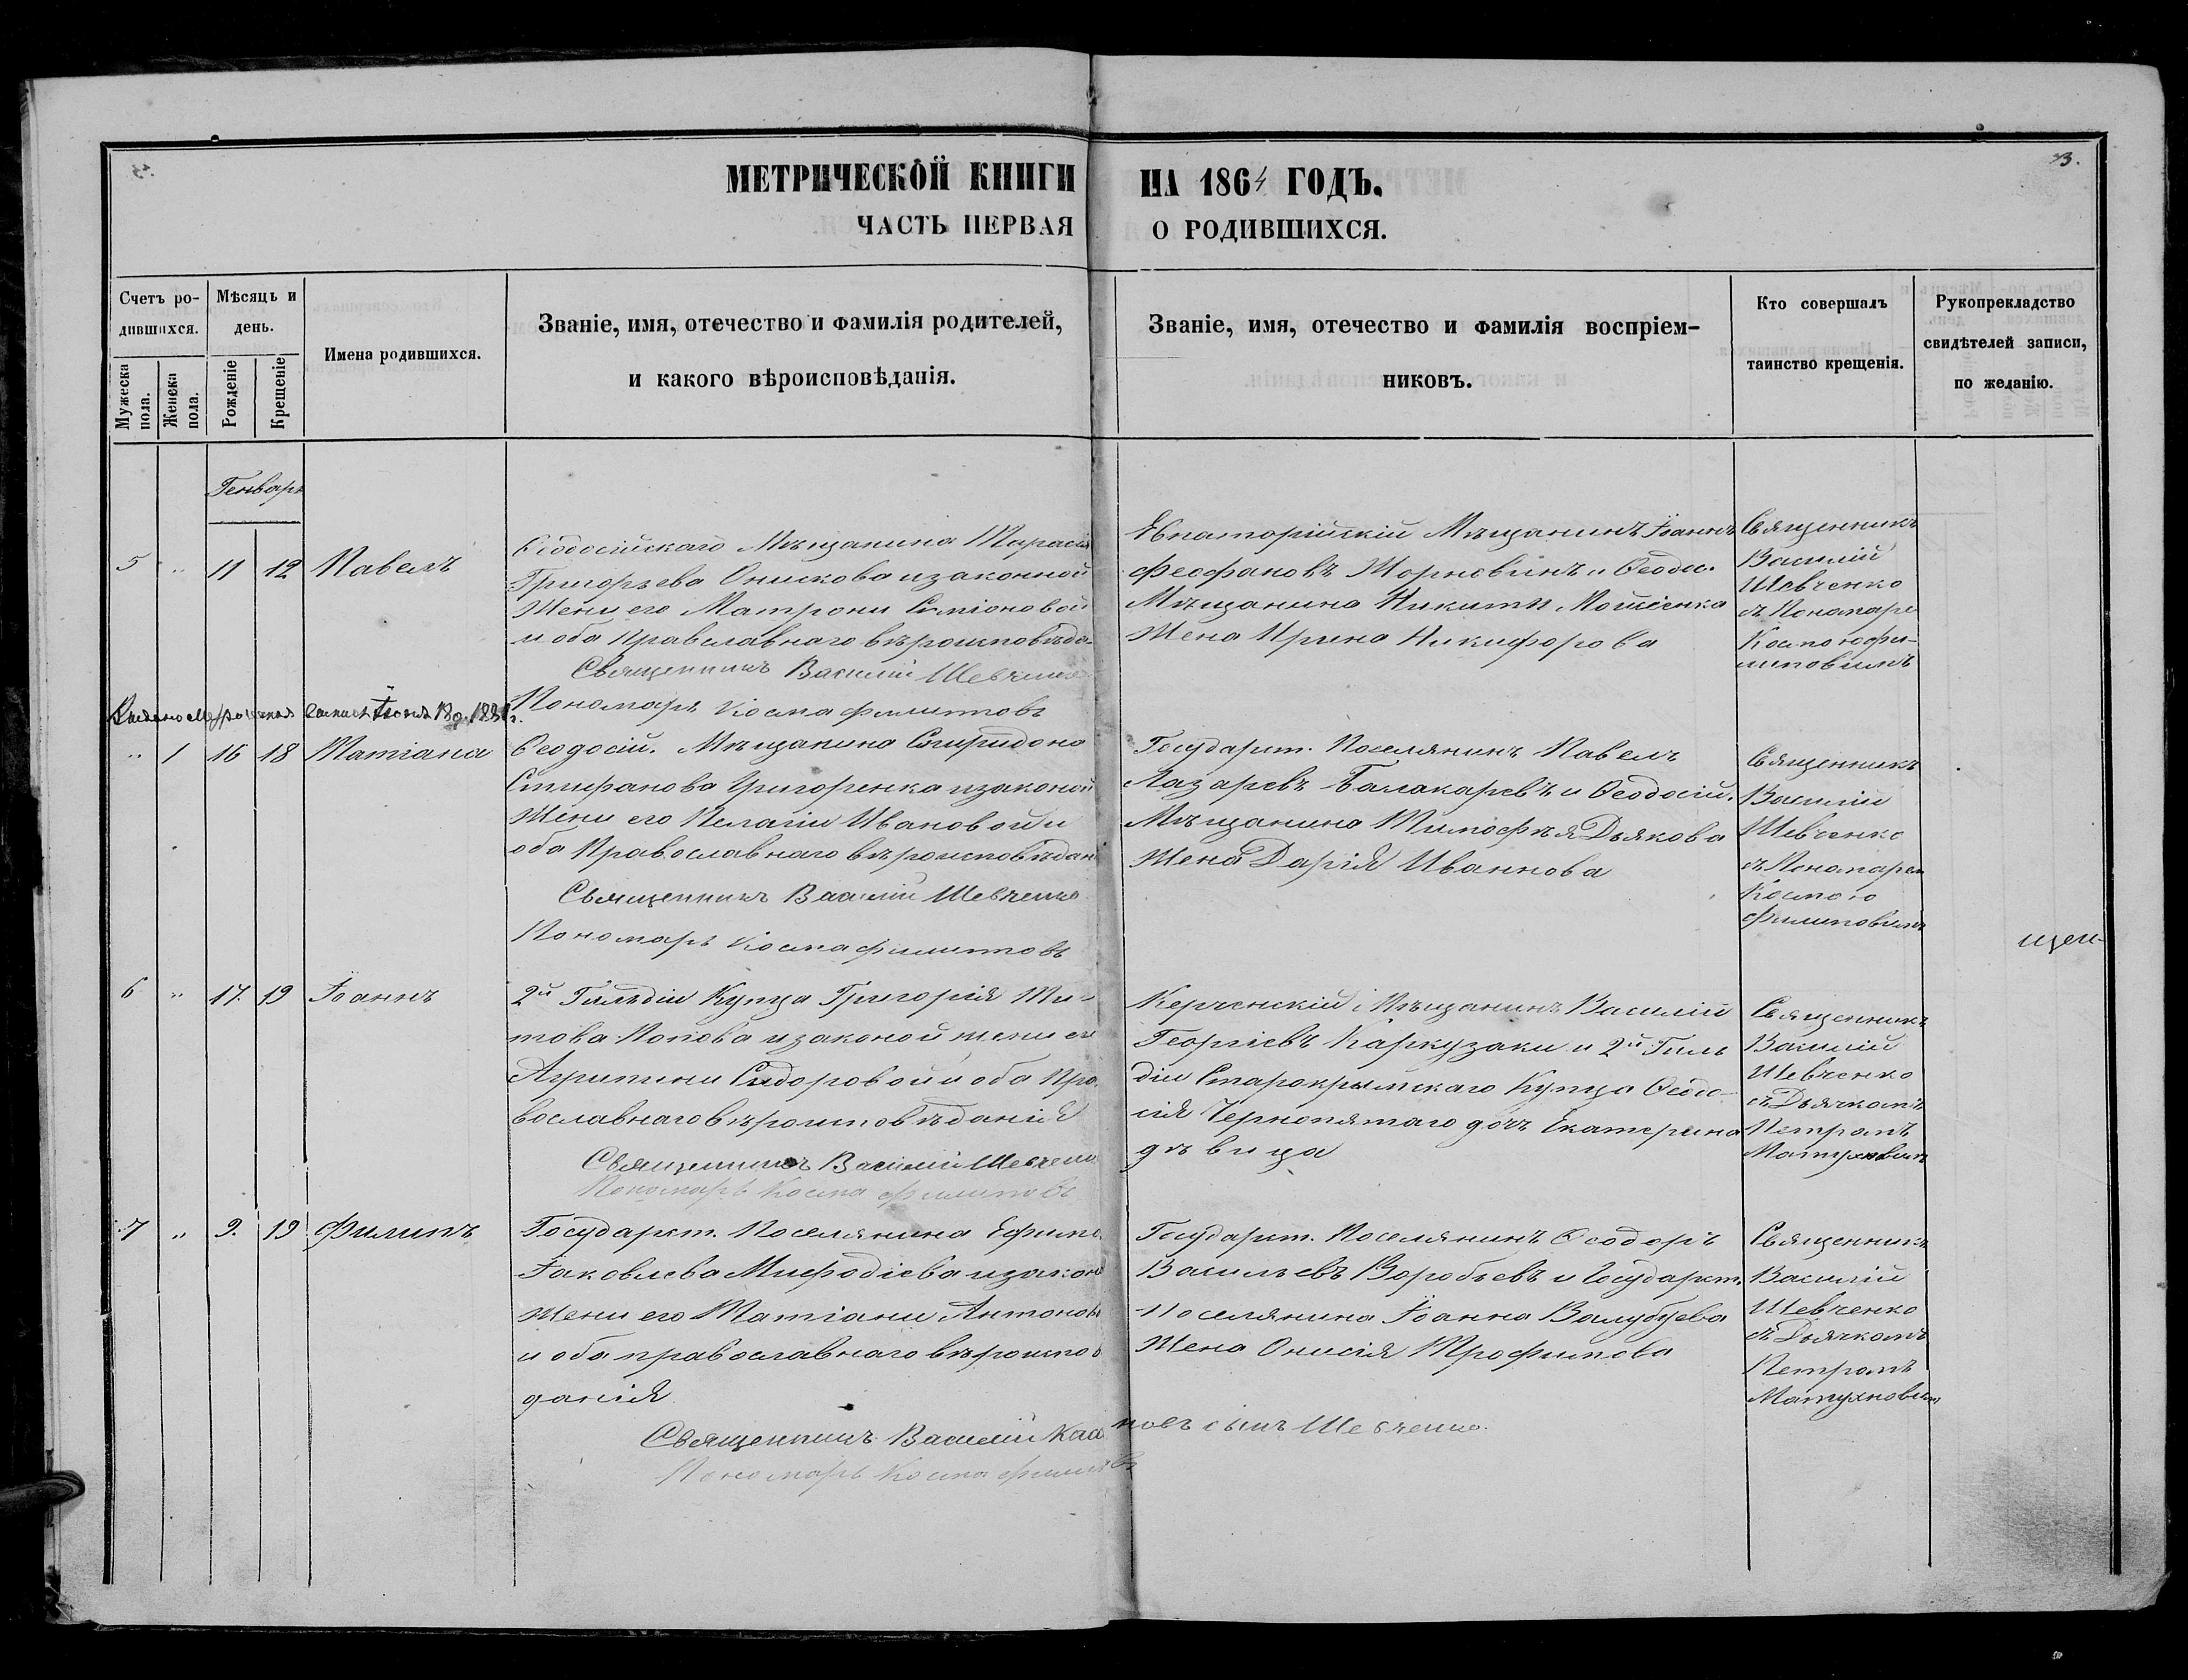 3.
МЕТРИЧЕСКОЙ КНИГИ НА 1864 ГОДЪ.
ЧАСТЬ ПЕРВАЯ О РОДИВШИХСЯ.
Счетъ ро-
дившихся.
Мужеска пола.
Женска пола.
Мѣсяцъ и
день.
Рожденіе
Крещеніе
Имена родившихся.
Званіе, имя, отечество и фамилія родителей,
и какого вѣроисповѣданія.
Званіе, имя, отечество и фамилія воспріем-
никовъ.
Кто совершалъ
таинство крещенія.
Рукоприкладство
свидѣтелей записи,
по желанію.
Генварь
5 " 11 12 Павелъ
Ѳеодосійскаго Мѣщанина Тарасія
Григорьева Онискова и законной
Жены его Матрони Симіоновой
и оба Православнаго вѣроисповѣда-
Священникъ Василій Шевченко
Пономарь Косма Филиповъ
Евпаторійскій Мѣщанинъ Іоаннъ
Феофановъ и Ѳеодос.
Мѣщанина Никиты
Жена Ирина Никифорова
Священникъ
Василій
Шевченко
съ Пономаре
Космою Фи-
липовимъ
" 1 16 18 Татіана
Ѳеодосій. Мѣщанина Спиридона
Стифанова Григоренка и законой
Жены его Пелагіи Ивановой и
оба Православнаго вѣроисповѣдані
Священникъ Василій Шевченко
Пономарь Косма Филиповъ
Государст. Поселянинъ Павелъ
Лазаревъ Балакаревъ и Ѳеодосій.
Мѣщанина Тимофѣя Дьякова
Жена Дарія Иваннова
Священникъ
Василій
Шевченко
съ Пономарем
Космою
Филиповимъ
щен-
6 " 17. 19 Іоаннъ
2й Гильдіи Купца Григорія Ти-
това Попова и законой жены его
Агрипины Сидоровой и оба Пра-
вославнаго вѣроисповѣданія
Священникъ Василій Шевченко
Пономарь Косма Филиповъ
Керченскій Мѣщанинъ Василій
Георгіевъ Каркузаки и 2й Гиль
діи Старокрымскаго Купца Ѳеодо-
сія Чернопятаго дочь Екатерина
дѣвица
Священникъ
Василій
Шевченко
съ Дьячкомъ
Петромъ
Матухновимъ
7 " 9. 19 Филипъ
Государст. Поселянина Ефима
Іаковлева Мифодіева и закон
Жены его Татіани Антонов
и оба православнаго вѣроиспов
данія
Священникъ Василій Касьяновъ сынъ Шевченко.
Пономарь Косма Филиповъ
Государст. Поселянинъ Ѳеодоръ
Васильевъ Воробьевъ и Государст.
Поселянина Іоанна Валубуева
Жена Онисія Трофимова
Священникъ
Василій
Шевченко
съ Дьячкомъ
Петромъ
Матухновим